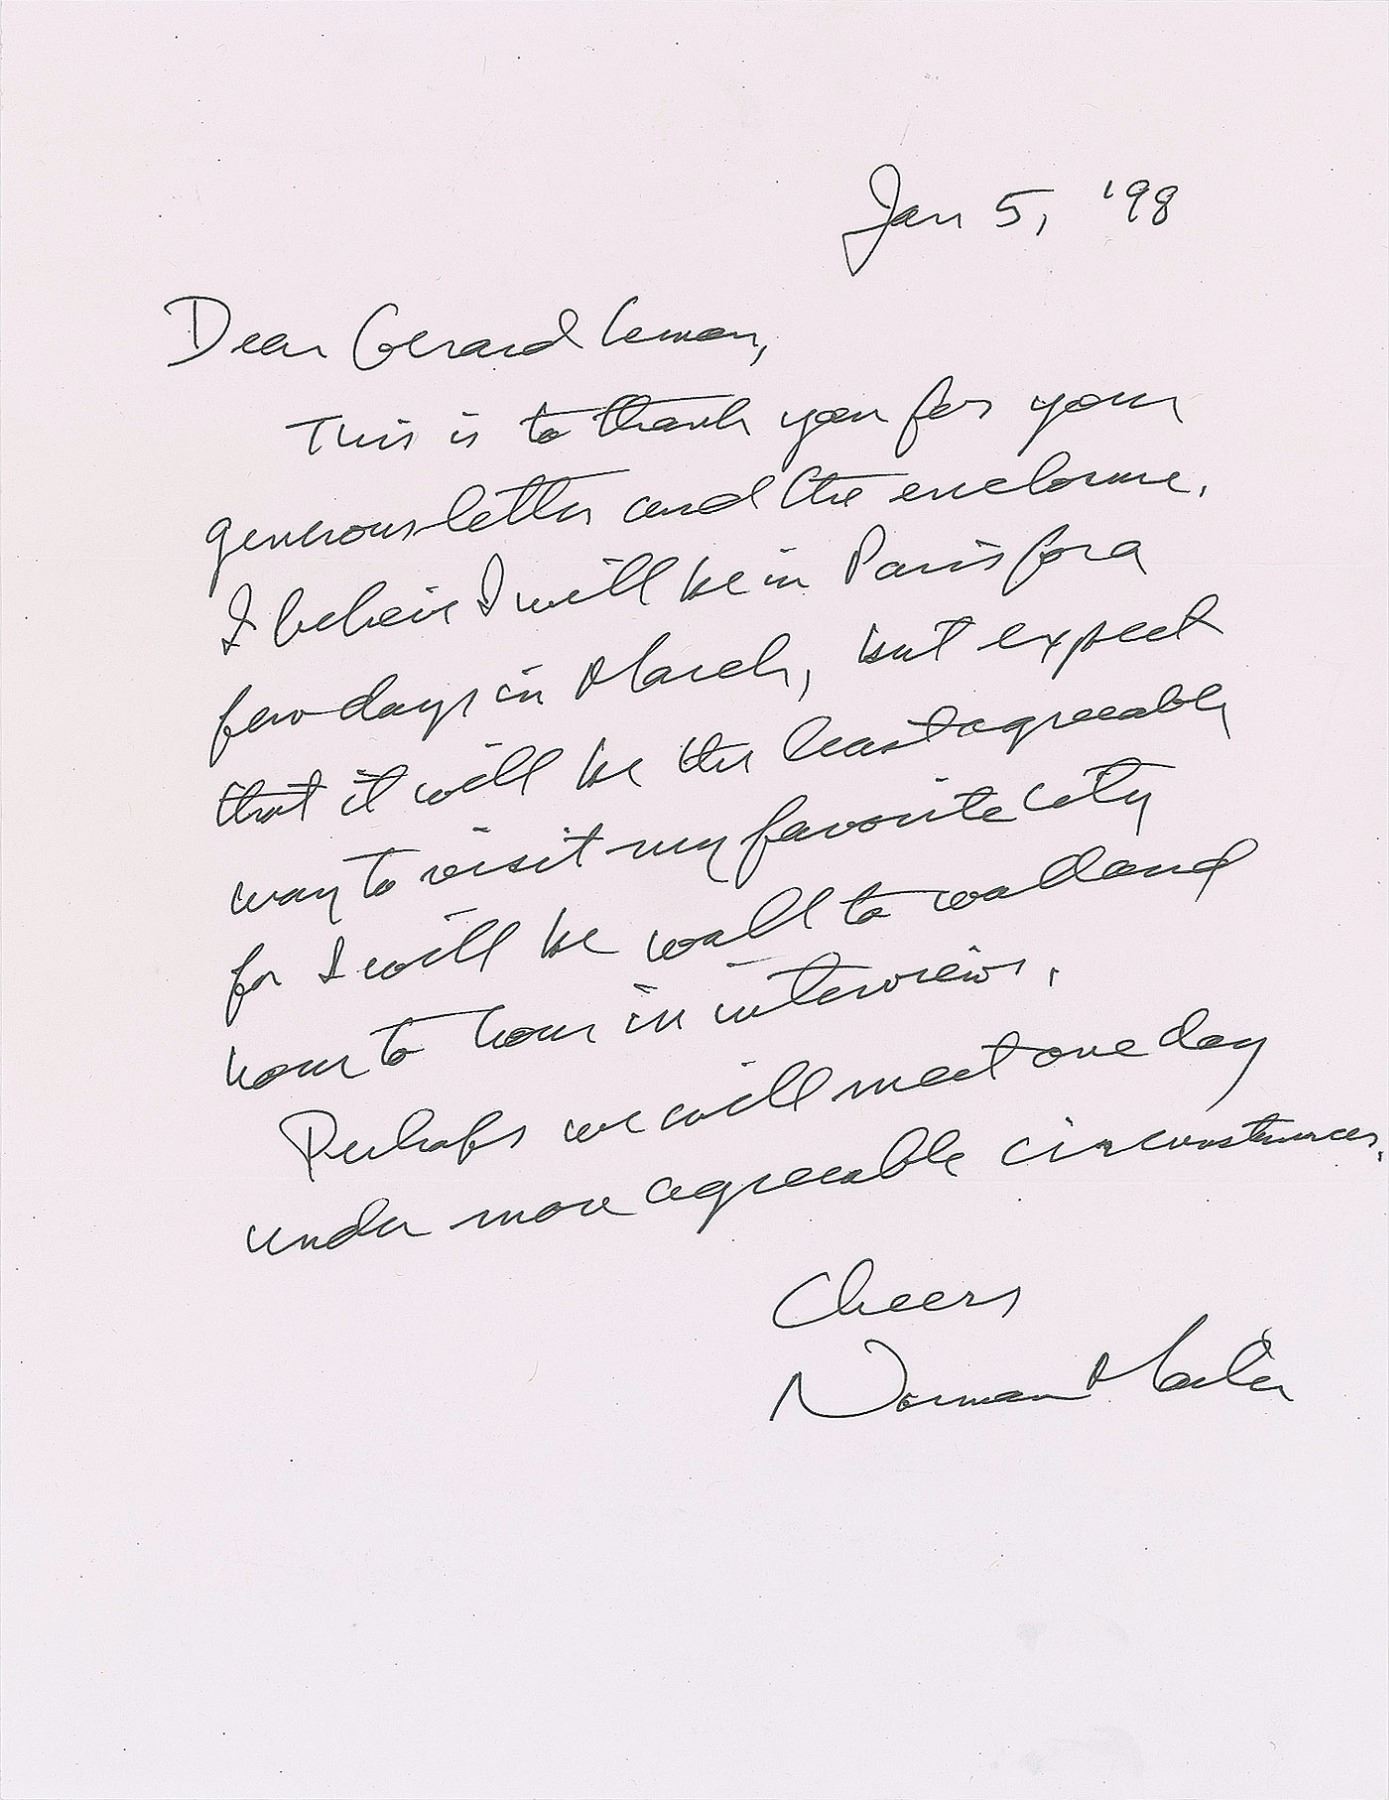 Jan 5, '98
Dear Gerard Leman,
This is to thank you for your
generous letter and the enclosure.
I believe I will be in Paris for a
few days in March, but expect
that it will be the least agreeable
way to visit my favorite city
for I will be wall to wall and
hour to hour in interviews.
Perhaps we will meet one day
under more agreeable circumstances.
Cheers
Norman Mailer